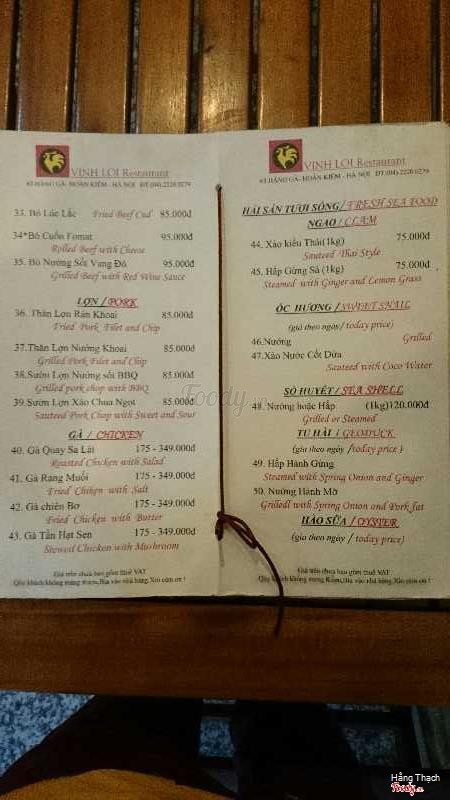 VINH LOI Restaurant
63 HÀNG GÀ- HOÀN KIẾM - HÀ NỘI ĐT (04) 2226 0279
33. Bò Lúc Lắc Fried Beef Cud 85.000đ
34*Bò Cuốn Fomat 95.000đ
Rolled Beef with Cheese
35. Bò Nướng Sốt Vang Đỏ 95.000đ
Grilled Beef with Red Wine Sauce
LỢN / PORK
36. Thăn Lợn Rán Khoai 85.000đ
Fried Pork Filet and Chip
37.Thăn Lợn Nướng Khoai 85.000đ
Grilled Pork Filet and Chip
38.Sườn Lợn Nướng sốt BBQ 85.000đ
Grilled pork chop with BBQ
39.Sườn Lợn Xào Chua Ngọt 85.000đ
Sauteed Pork Chop with Sweet and Sour
GÀ / CHICKEN
40. Gà Quay Sa Lát 175 - 349.000đ
Roasted Chicken with Salad
41. Gà Rang Muối 175 - 349.000đ
Fried Chiken with Salt
42. Gà chiên Bơ 175 - 349.000đ
Fried Chicken with Butter
43. Gà Tần Hạt Sen 175 - 349.000đ
Stewed Chicken with Mushroom
Giá trên chưa bao gồm thuế VAT
Qúy khách không mang Rượu,Bia vào nhà hàng.Xin cám ơn !
VINH LOI Restaurant
63 HÀNG GÀ- HOÀN KIẾM - HÀ NỘI ĐT (04) 2226 0279
HẢI SẢN TƯƠI SỐNG / FRESH SEA FOOD
NGAO / CLAM
44. Xào kiểu Thái(1kg) 75.000đ
Sauteed Thai Style
45. Hấp Gừng Sả (1kg) 75.000đ
Steamed with Ginger and Lemon Grass
ỐC HƯƠNG / SWEET SNAIL
(giá theo ngày / today price)
46.Nướng Grilled
47.Xào Nước Cốt Dừa
Sauteed with Coco Water
SÒ HUYẾT / SEA SHELL
48. Nướng hoặc Hấp (1kg)120.000đ
Grilled or Steamed
TU HÀI / GEODUCK
(giá theo ngày / today price )
49. Hấp Hành Gừng
Steamed with Spring Onion and Ginger
50. Nướng Hành Mỡ
Grilledl with Spring Onion and Pork fat
HÀO SỮA / OYSTER
(gía theo ngày / today price)
Giá trên chưa bao gồm thuế VAT
Qúy khách không mang Rượu,Bia vào nhà hàng.Xin cám ơn !
Foody
Hằng Thạch
Foody.vn